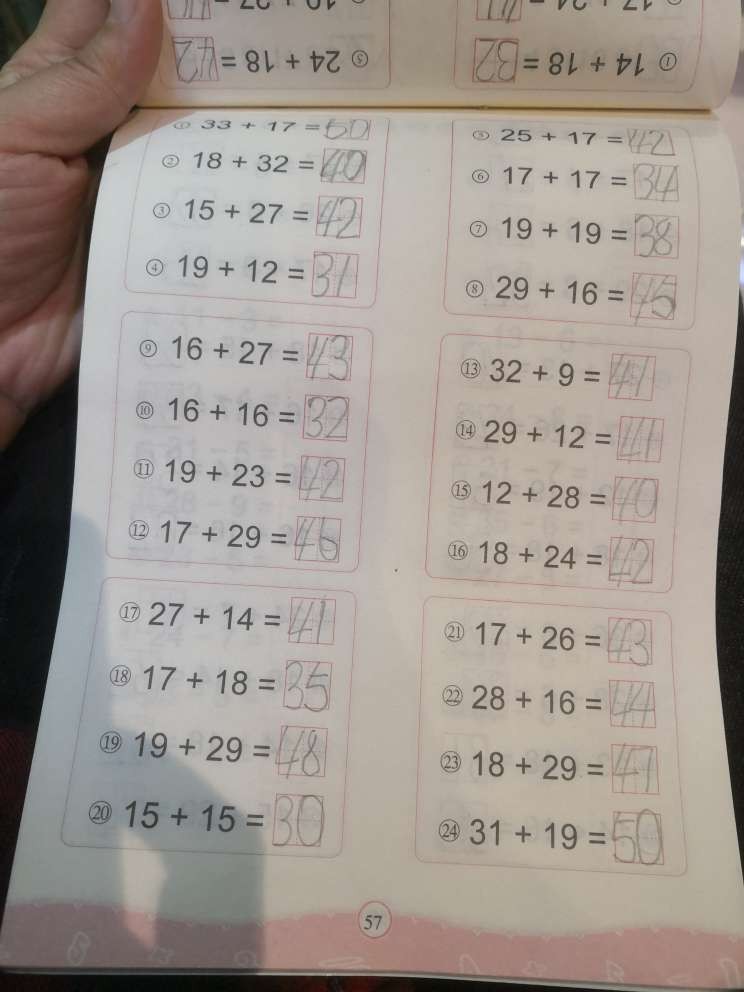 ⑤ 24 + 18 = 42
① 14 + 18 = 32
① 33 + 17 = 50
② 18 + 32 = 40
③ 15 + 27 = 42
④ 19 + 12 = 31
⑤ 25 + 17 = 42
⑥ 17 + 17 = 34
⑦ 19 + 19 = 38
⑧ 29 + 16 = 45
⑨ 16 + 27 = 43
⑩ 16 + 16 = 32
⑪ 19 + 23 = 42
⑫ 17 + 29 = 46
⑬ 32 + 9 = 41
⑭ 29 + 12 = 41
⑮ 12 + 28 = 40
⑯ 18 + 24 = 42
⑰ 27 + 14 = 41
⑱ 17 + 18 = 35
⑲ 19 + 29 = 48
⑳ 15 + 15 = 30
㉑ 17 + 26 = 43
㉒ 28 + 16 = 44
㉓ 18 + 29 = 41
㉔ 31 + 19 = 50
57